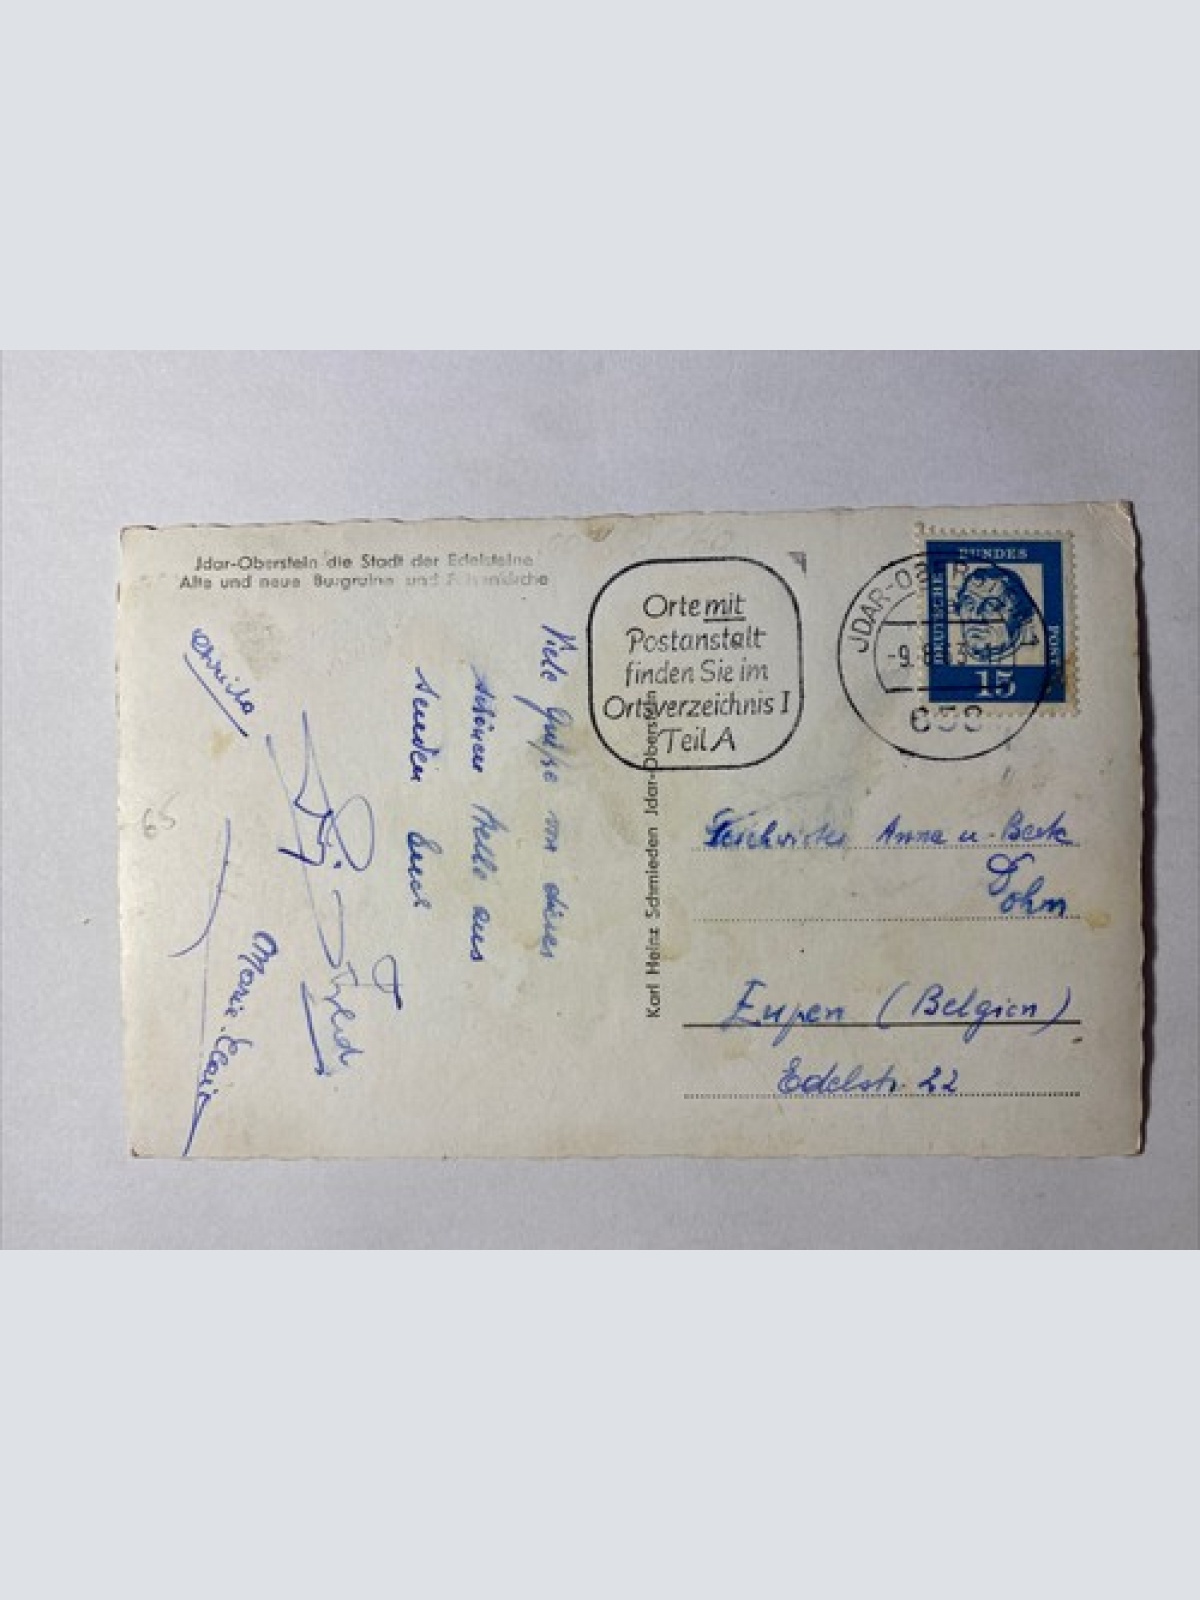 Jdar-Oberstein die Stadt der Edelsteine
Alte und neue Burgruine und Felsenkirche
Viele Grüße von dieser
schönen Stelle aus
senden Euch
Marie-Claire
65
Karl Heinz Schmieden Jdar-Oberstein
Orte mit
Postanstalt
finden Sie im
Ortsverzeichnis I
Teil A
JDAR-OBERSTEIN 1
-9.
658
DEUTSCHE
BUNDES
POST
15
Geschwister Anna u. Berta
Dohn
Eupen (Belgien)
Edelstr. 22